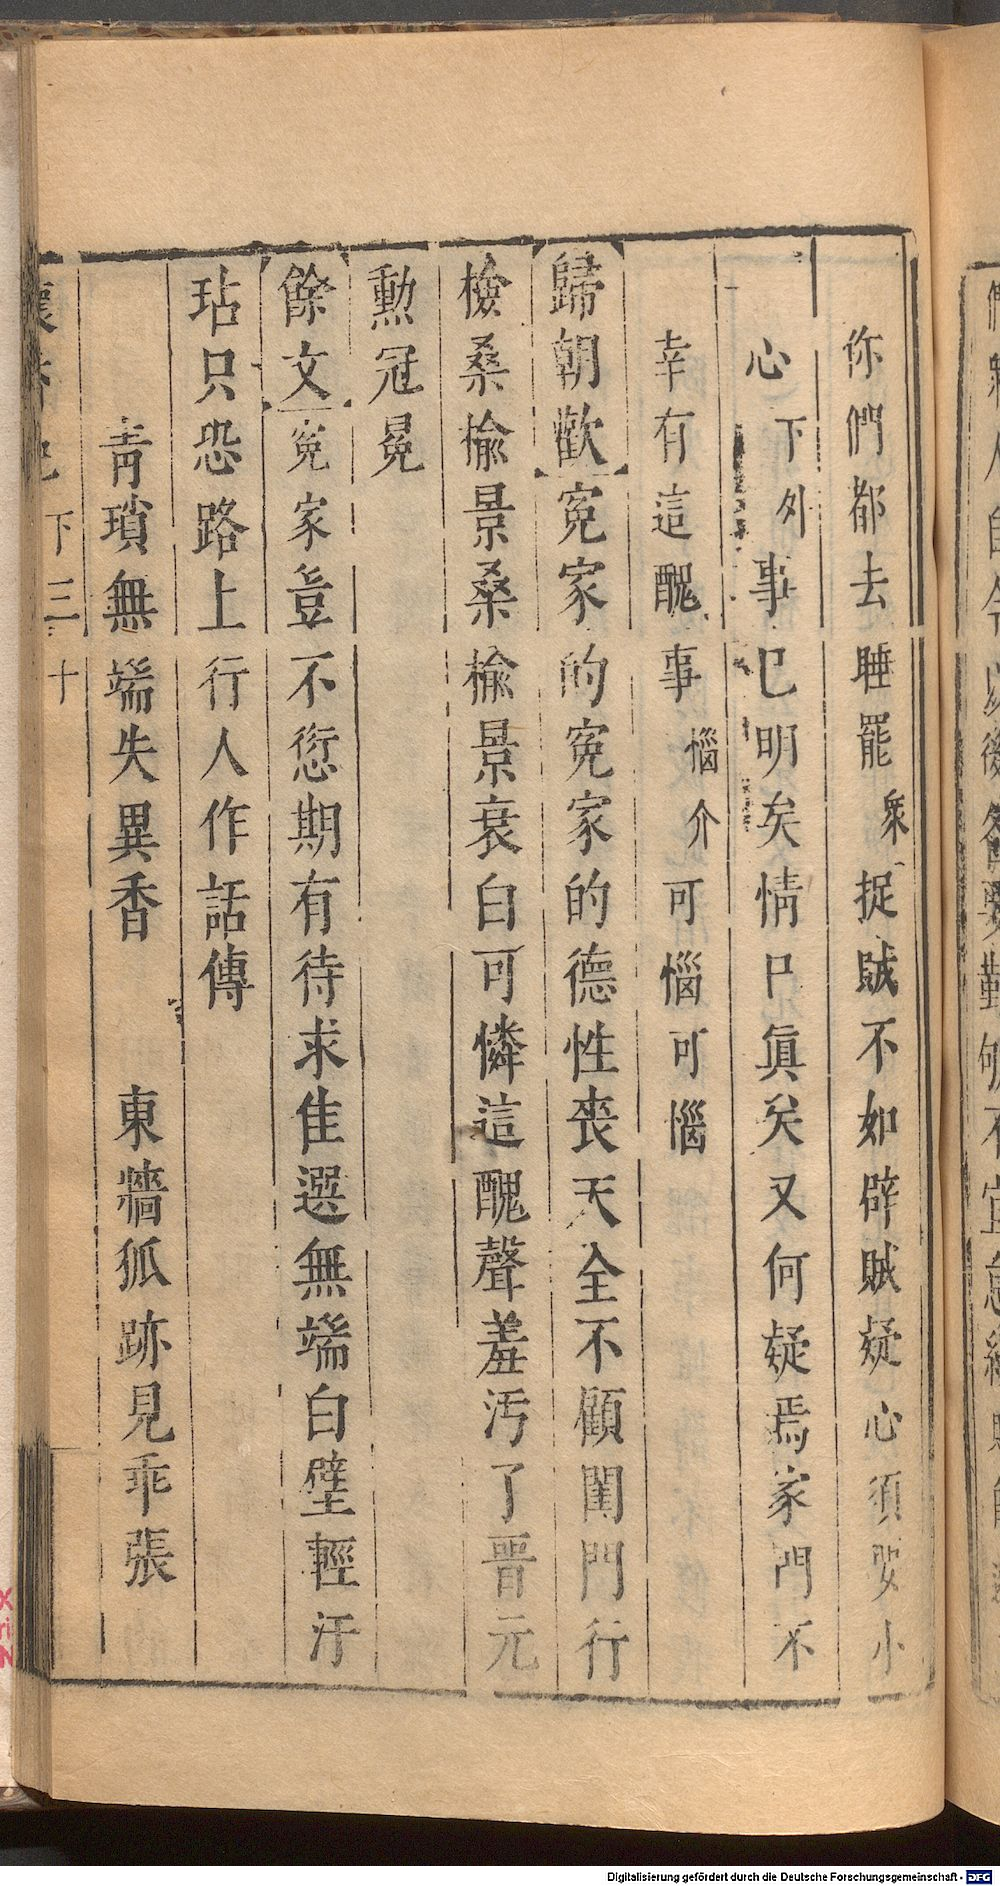 你們都去睡罷衆捉賊不如辟賊疑心須要小
心下外事已明矣情已眞矣又何疑焉家門不
幸有這醜事惱介可惱可惱
歸朝歡寃家的寃家的德性喪天全不顧閨門行
檢桑榆景桑榆景衰白可憐這醜聲羞汚了晉元
勲冠冕
餘文寃家豈不愆期有待求隹選無端白壁輕汙
玷只恐路上行人作話傳
靑瑣無端失異香　東牆狐跡見乖張
懷香記 下 三十
Digitalisierung gefördert durch die Deutsche Forschungsgemeinschaft - DFG